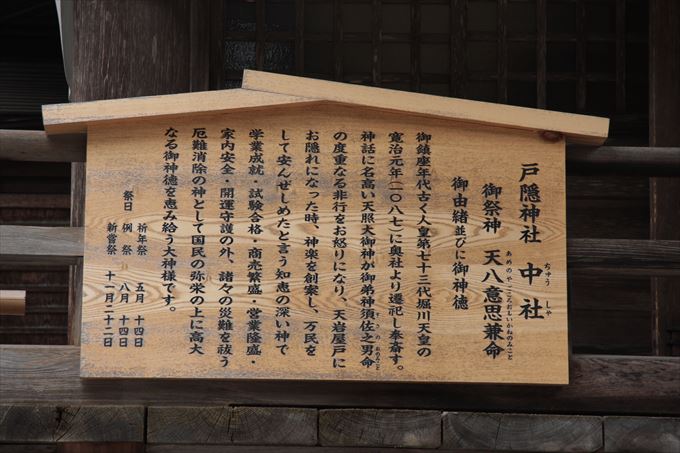 戸隠神社 中社
ちゅう しゃ
御祭神 天八意思兼命
あめのや こころおもいかねのみこと
御由緒並びに御神徳
御鎮座年代古く人皇第七十三代堀川天皇の
寛治元年(一〇八七)に奥社より遷祀し奉斎す。
神話に名高い天照大御神が御弟神須佐之男命
の度重なる非行をお怒りになり、天岩屋戸に
お隠れになった時、神楽を創案し、万民を
して安んぜしめたと言う知恵の深い神で
学業成就・試験合格・商売繁盛・営業隆盛・
家内安全・開運守護の外、諸々の災難を祓う
厄難消除の神として国民の弥栄の上に高大
なる御神徳を恵み給う大神様です。
祭日
祈年祭 五月 十四日
例祭 八月 十四日
新嘗祭 十一月二十二日